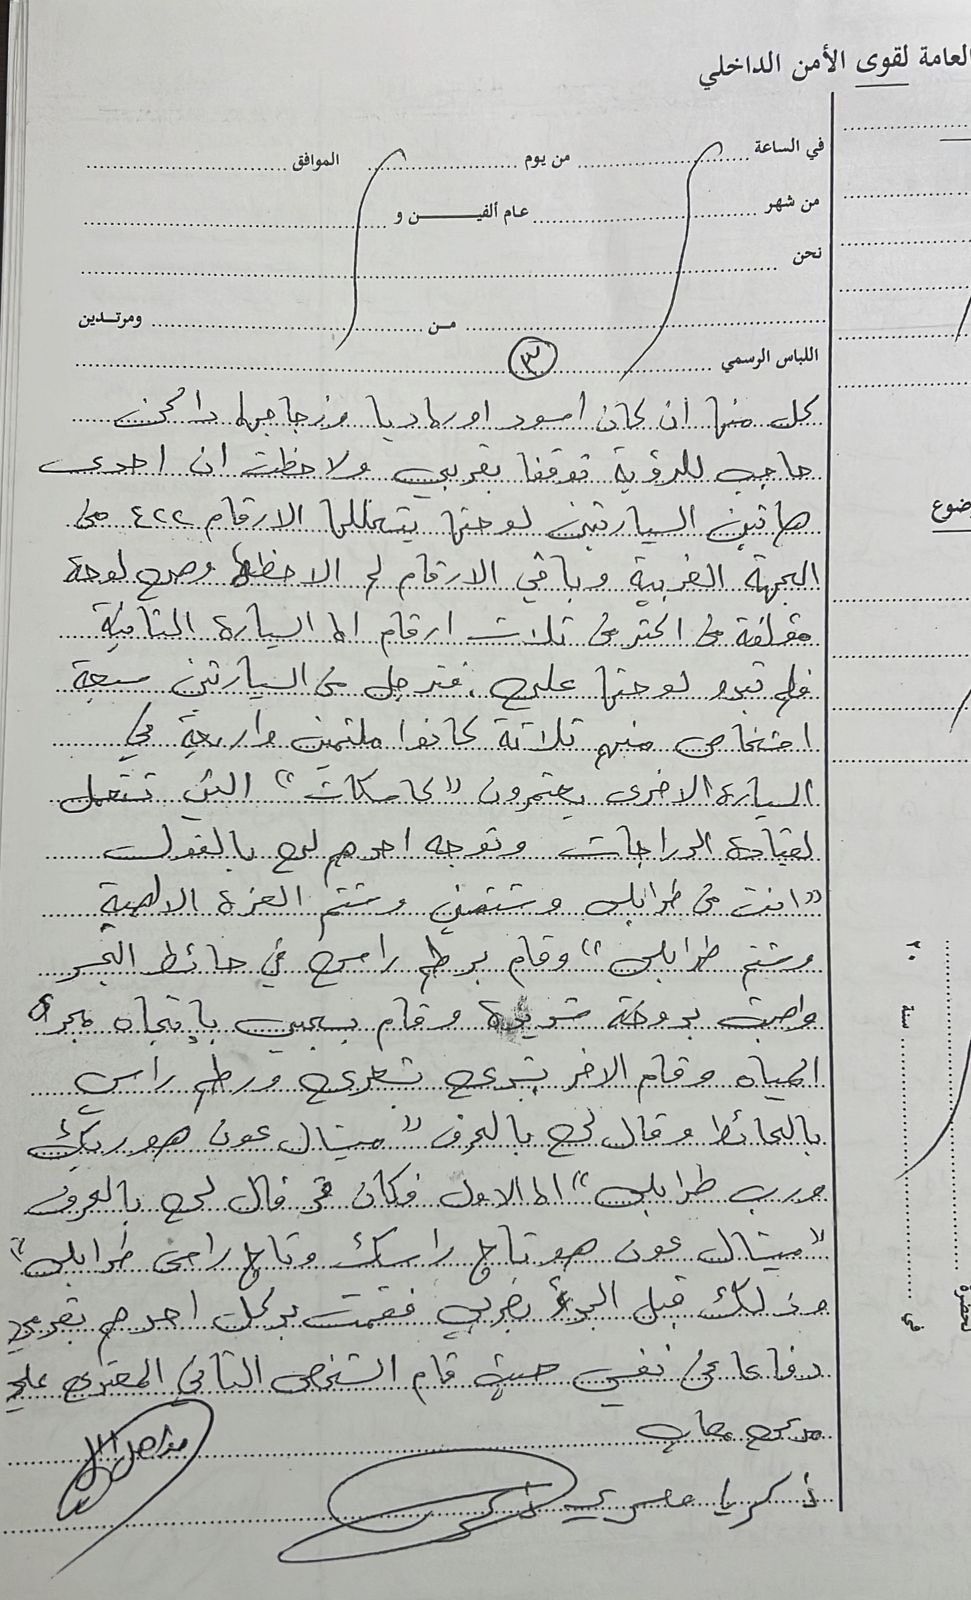 العامة لقوى الأمن الداخلي
في الساعة من يوم الموافق
من شهر عام ألفين و
نحن
من ومرتدين
اللباس الرسمي
٣
كل منها ان كان اسود او رماديا وزجاجها داكن
حاجب للرؤية توقفنا بقربي ولاحظت ان احدى
هاتين السيارتين لوحتها يتخللها الارقام ٤٢٢ من
الجهة الغربية وباقي الارقام لم الاحظها وهي لوحة
مؤلفة من اكثر من ثلاث ارقام اما السيارة الثانية
فلم تبدو لوحتها علي. فترجل من السيارتين سبعة
اشخاص منهم ثلاثة كانوا ملثمين واربعة في
السيارة الاخرى يعتمرون "كاسكات" التي تستعمل
لقيادة الدراجات وتوجه احدهم لي بالقول
"انت من طرابلس وشتمني وشتم العزة الالهية
وشتم طرابلس" وقام برطم راسي في حائط البحر
واصبت بدوخة شديدة وقام بسحبي باتجاه مجرى
المياه وقام الاخر بشدي بشعري ورطم راسي
بالحائط وقال لي بالحرف "ميشال عون هو ربك
ورب طرابلس" اما الاول فكان قد قال لي بالحرف
"ميشال عون هو تاج راسك وتاج راس طرابلس"
وذلك قبل البدء بضربي فقمت بركل احدهم بقدمي
دفاعا عن نفسي حيث قام الشخص الثاني المعتدي علي
مدعي
زكريا مصري
سنة
٢٠
في
لحضرة
ضوع